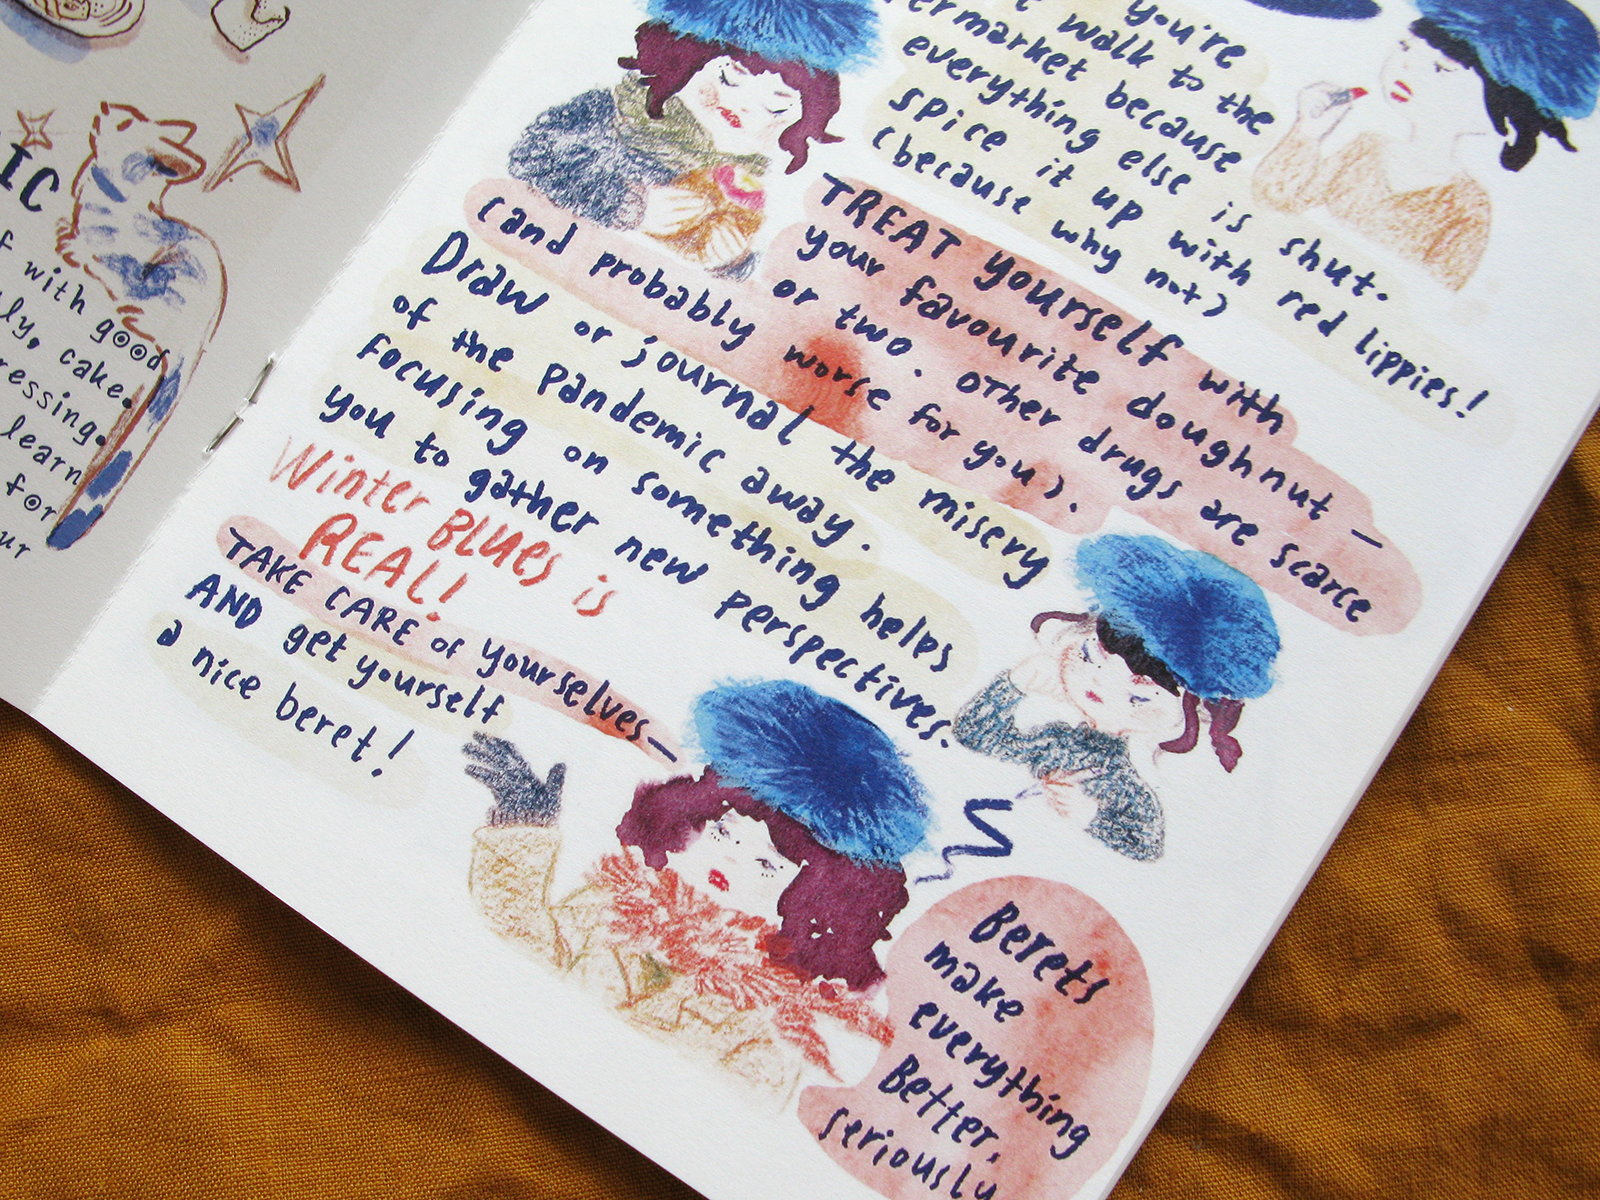 IC
with good
cake.
learn
for
you're
walk to the
because
everything else is shut.
spice it up with red lippies!
(because why not)
TREAT yourself with
your favourite doughnut —
or two. other drugs are scarce
(and probably worse for you).
Draw or journal the misery
of the pandemic away.
Focusing on something helps
you to gather new perspectives.
Winter BLUES is
REAL!
TAKE CARE of yourselves—
AND get yourself
a nice beret!
Berets
make
everything
Better,
seriously